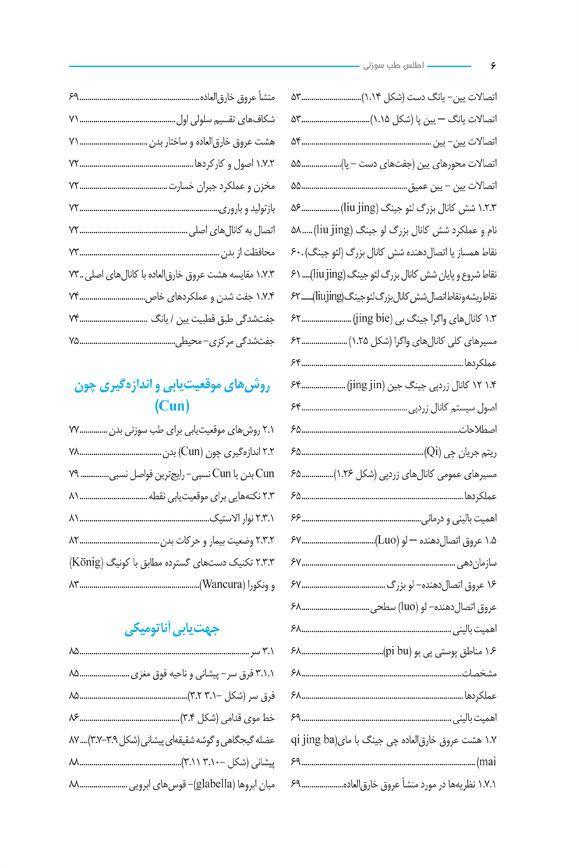 ۶ اطلس طب سوزنی
اتصالات یین- یانگ دست (شکل ۱.۱۴)..............................۵۳
اتصالات یانگ – یین پا (شکل ۱.۱۵)..............................۵۳
اتصالات یین- یین..............................۵۴
اتصالات محورهای یین (جفت‌های دست - پا)....................۵۵
اتصالات یین - یین عمیق..............................۵۵
۱.۲.۳ شش کانال بزرگ لئو جینگ (liu jing)....................۵۶
نام و عملکرد شش کانال بزرگ لو جینگ (liu jing).....۵۸
نقاط همساز یا اتصال‌دهنده شش کانال بزرگ (لئو جینگ).۶۰
نقاط شروع و پایان شش کانال بزرگ لئو جینگ (liu jing)....۶۱
نقاط ریشه و نقاط اتصال شش کانال بزرگ لئو جینگ (liu jing).....۶۲
۱.۳ کانال‌های واگرا جینگ بی (jing bie)....................۶۲
مسیرهای کلی کانال‌های واگرا (شکل ۱.۲۵)....................۶۲
عملکردها..............................۶۴
۱.۴ ۱۲ کانال زردپی جینگ جین (jing jin)....................۶۴
اصول سیستم کانال زردپی..............................۶۴
اصطلاحات..............................۶۵
ریتم جریان چی (Qi)..............................۶۵
مسیرهای عمومی کانال‌های زردپی (شکل ۱.۲۶)..........۶۵
عملکردها..............................۶۵
اهمیت بالینی و درمانی..............................۶۶
۱.۵ عروق اتصال‌دهنده – لو (Luo)..............................۶۷
سازمان‌دهی..............................۶۷
۱۶ عروق اتصال‌دهنده- لو بزرگ..............................۶۷
عروق اتصال‌دهنده- لو (luo) سطحی..............................۶۸
اهمیت بالینی..............................۶۸
۱.۶ مناطق پوستی پی بو (pi bu)..............................۶۸
مشخصات..............................۶۸
عملکردها..............................۶۸
اهمیت بالینی..............................۶۹
۱.۷ هشت عروق خارق‌العاده چی جینگ با مای(qi jing ba
mai)..............................۶۹
۱.۷.۱ نظریه‌ها در مورد منشأ عروق خارق‌العاده....................۶۹
منشأ عروق خارق‌العاده..............................۶۹
شکاف‌های تقسیم سلولی اول..............................۷۱
هشت عروق خارق‌العاده و ساختار بدن..............................۷۱
۱.۷.۲ اصول و کارکردها..............................۷۲
مخزن و عملکرد جبران خسارت..............................۷۲
بازتولید و باروری..............................۷۲
اتصال به کانال‌های اصلی..............................۷۲
محافظت از بدن..............................۷۳
۱.۷.۳ مقایسه هشت عروق خارق‌العاده با کانال‌های اصلی..۷۳
۱.۷.۴ جفت شدن و عملکردهای خاص..............................۷۴
جفت‌شدگی طبق قطبیت یین / یانگ..............................۷۴
جفت‌شدگی مرکزی- محیطی..............................۷۵
روش‌های موقعیت‌یابی و اندازه‌گیری چون
(Cun)
۲.۱ روش‌های موقعیت‌یابی برای طب سوزنی بدن.............۷۷
۲.۲ اندازه‌گیری چون (Cun) بدن..............................۷۸
Cun بدن یا Cun نسبی- رایج‌ترین فواصل نسبی.............۷۹
۲.۳ نکته‌هایی برای موقعیت‌یابی نقطه..............................۸۱
۲.۳.۱ نوار الاستیک..............................۸۱
۲.۳.۲ وضعیت بیمار و حرکات بدن..............................۸۲
۲.۳.۳ تکنیک دست‌های گسترده مطابق با کونیگ (König)
و ونکورا (Wancura)..............................۸۳
جهت‌یابی آناتومیکی
۳.۱ سر..............................۸۵
۳.۱.۱ فرق سر- پیشانی و ناحیه فوق مغزی....................۸۵
فرق سر (شکل -۳.۱ ۳.۲)..............................۸۵
خط موی قدامی (شکل ۳.۴)..............................۸۶
عضله گیجگاهی و گوشه شقیقه‌ای پیشانی(شکل ۳.۹-۳.۷)...۸۷
پیشانی (شکل -۳.۱۰ ۳.۱۱)..............................۸۸
میان ابروها (glabella)- قوس‌های ابرویی....................۸۸